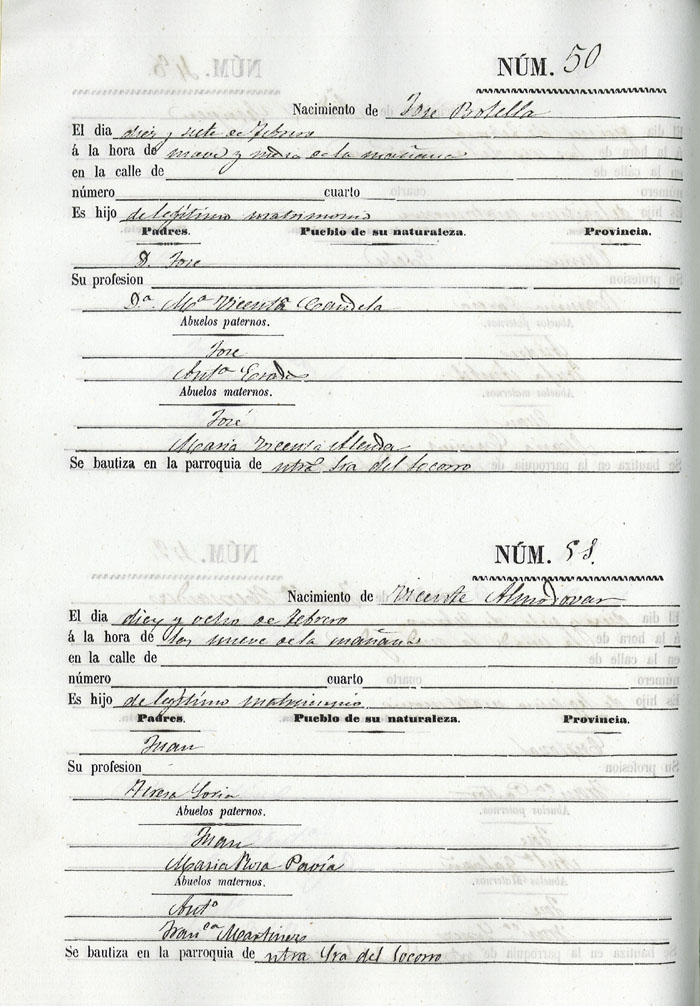 NÚM. 50
Nacimiento de Jose Botella
El dia diez y siete de Febrero
á la hora de nueve y media de la mañana
en la calle de
número cuarto
Es hijo de legítimo matrimonio
Padres. Pueblo de su naturaleza. Provincia.
D. Jose
Su profesion
D.ª M.ª Vicenta Candela
Abuelos paternos.
Jose
Ant.ª
Abuelos maternos.
José
Maria Vicenta Alenda
Se bautiza en la parroquia de ntra Sra del Socorro
NÚM. 51.
Nacimiento de Vicente Almodovar
El dia diez y ocho de Febrero
á la hora de las nueve de la mañana
en la calle de
número cuarto
Es hijo de legítimo matrimonio
Padres. Pueblo de su naturaleza. Provincia.
Juan
Su profesion
Teresa Soria
Abuelos paternos.
Juan
Maria Rosa Pavía
Abuelos maternos.
Ant.º
Fran.ca Martinez
Se bautiza en la parroquia de ntra Sra del Socorro